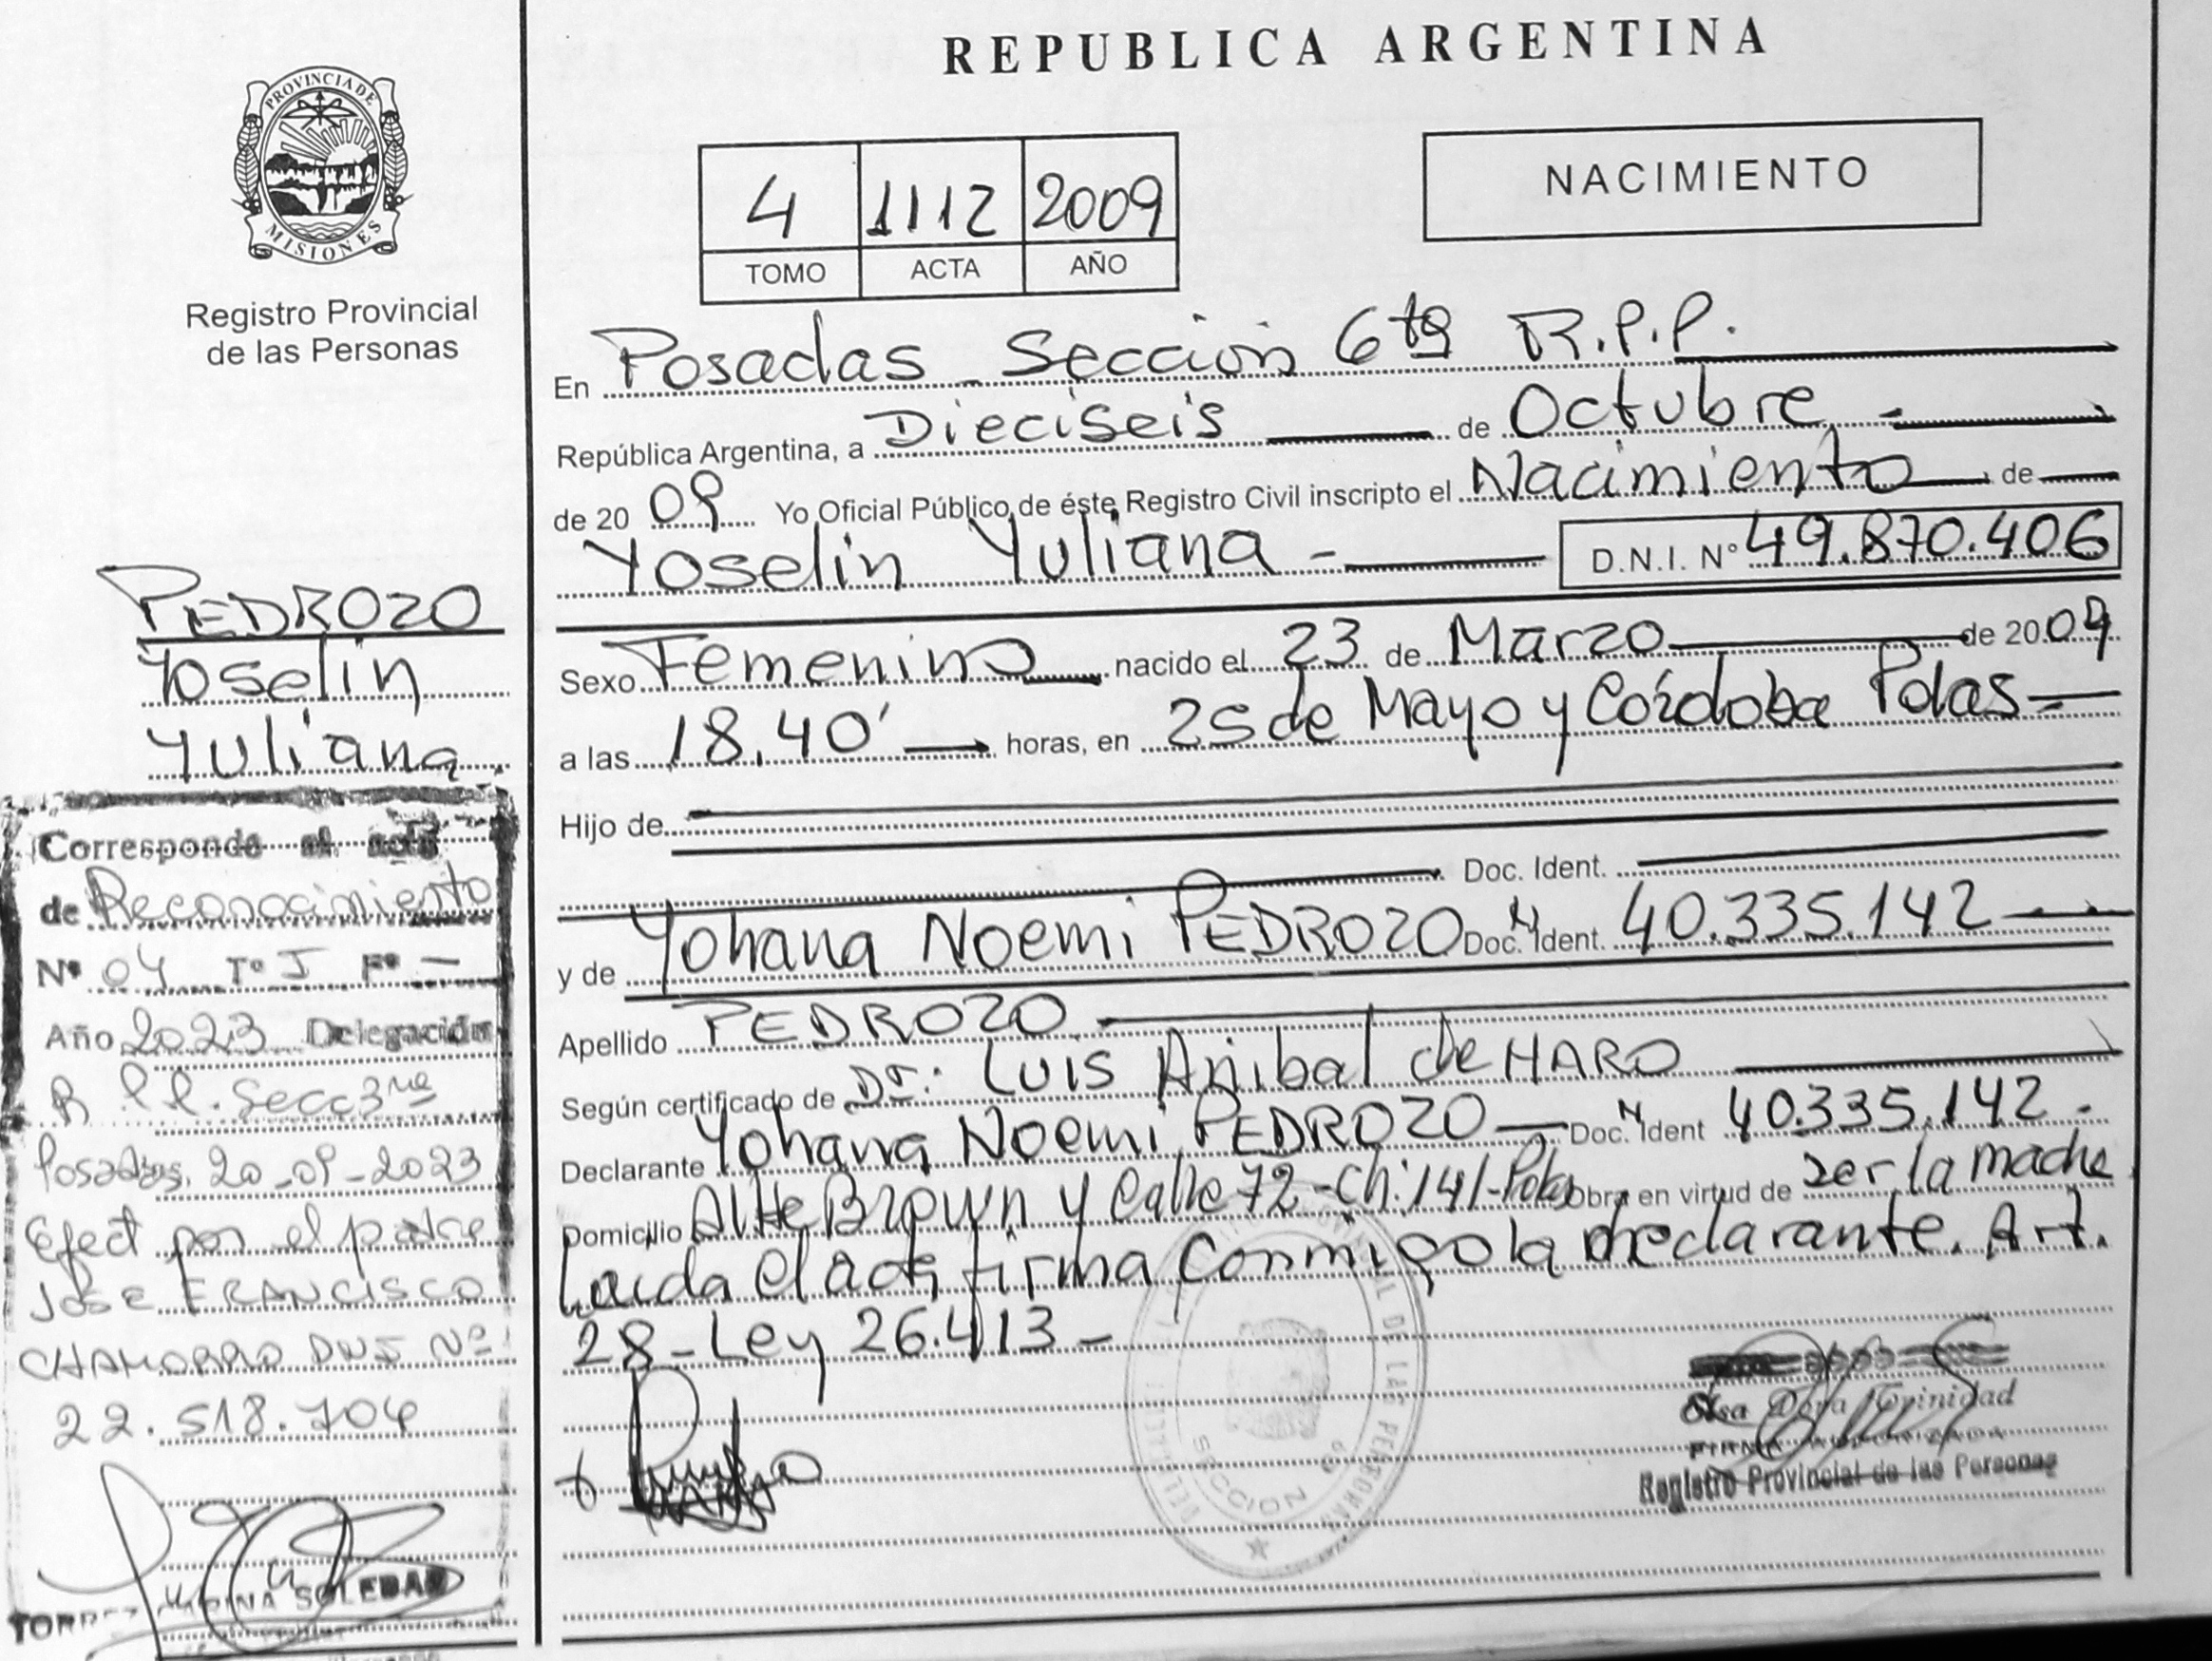 REPUBLICA ARGENTINA
PROVINCIA DE
MISIONES
Registro Provincial
de las Personas
4 1112 2009
TOMO ACTA AÑO
NACIMIENTO
En Posadas Sección 6ta R.P.P.
República Argentina, a Dieciseis de Octubre
de 20 09 Yo Oficial Público de éste Registro Civil inscripto el Nacimiento de
Yoselin Yuliana - D.N.I. Nº 49.870.406
Sexo Femenino nacido el 23 de Marzo de 20 09
a las 18.40' horas, en 25 de Mayo y Córdoba Pdas
Hijo de
Doc. Ident.
y de Yohana Noemi PEDROZO Doc. N Ident. 40.335.142
Apellido PEDROZO
Según certificado de Dr: Luis Anibal de HARO
Declarante Yohana Noemi PEDROZO Doc. N Ident 40.335.142 -
Domicilio Alte Brown y Calle 72 - Ch: 141 - Pdas Obra en virtud de ser la madre
Leida el acta firma conmigo la declarante. Art.
28 - Ley 26.413 -
Elsa Dora Trinidad
FIRMA AUTORIZADA
Registro Provincial de las Personas
SECCION
PEDROZO
Yoselin
Yuliana
Corresponde al acta
de Reconocimiento
Nº 04 Tº I Fº -
Año 2023 Delegación
R.P.P. Secc 3ra
Posadas, 20-09-2023
Efect por el padre
JOSE FRANCISCO
CHAMORRO DNI Nº
22.518.704
SOLEDAD